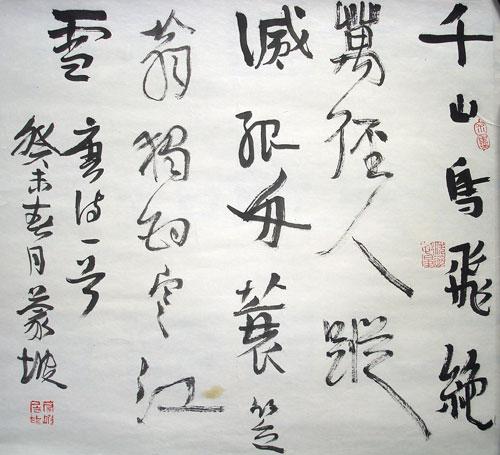 千山鳥飛絶
萬徑人蹤
滅孤舟蓑笠
翁獨釣寒江
雪
唐诗一首
癸未春月蒙坡